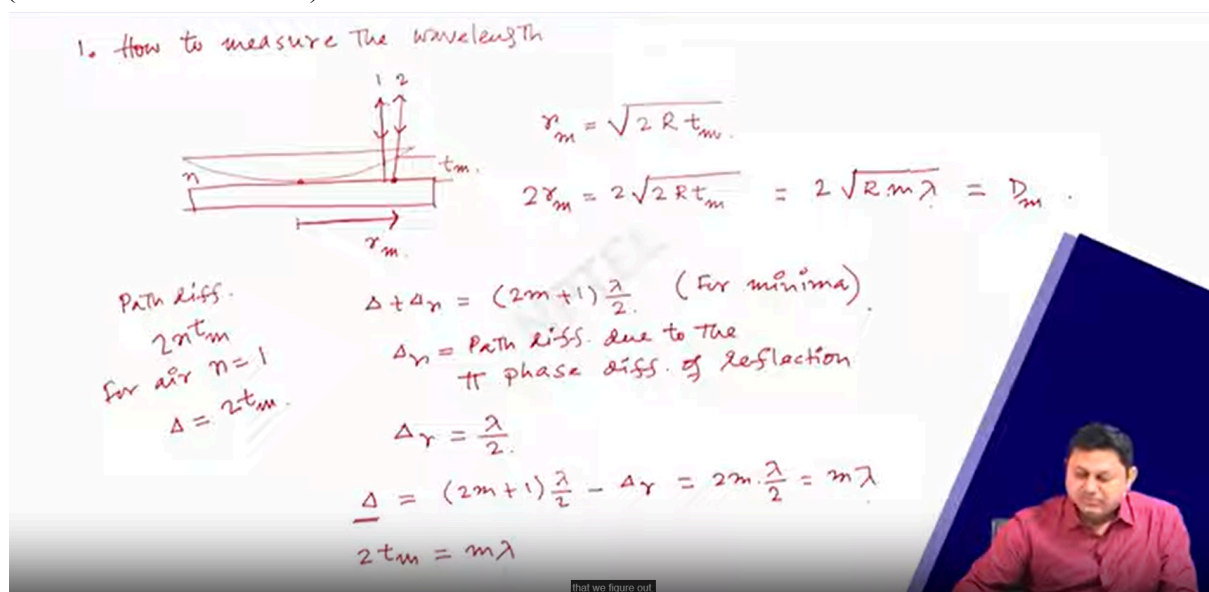 1. How to measure the wavelength
1 2
n
t_m.
r_m.
r_m = √2Rt_m.
2r_m = 2√2Rt_m = 2√R.mλ = D_m.
Path diff.
2nt_m
for air n=1
Δ = 2t_m.
Δ+Δ_r = (2m+1) λ/2. (For minima).
Δ_r = Path diff. due to the
π phase diff. of reflection
Δ_r = λ/2.
Δ = (2m+1) λ/2 - Δ_r = 2m.λ/2 = mλ
2t_m = mλ
NPTEL
that we figure out.